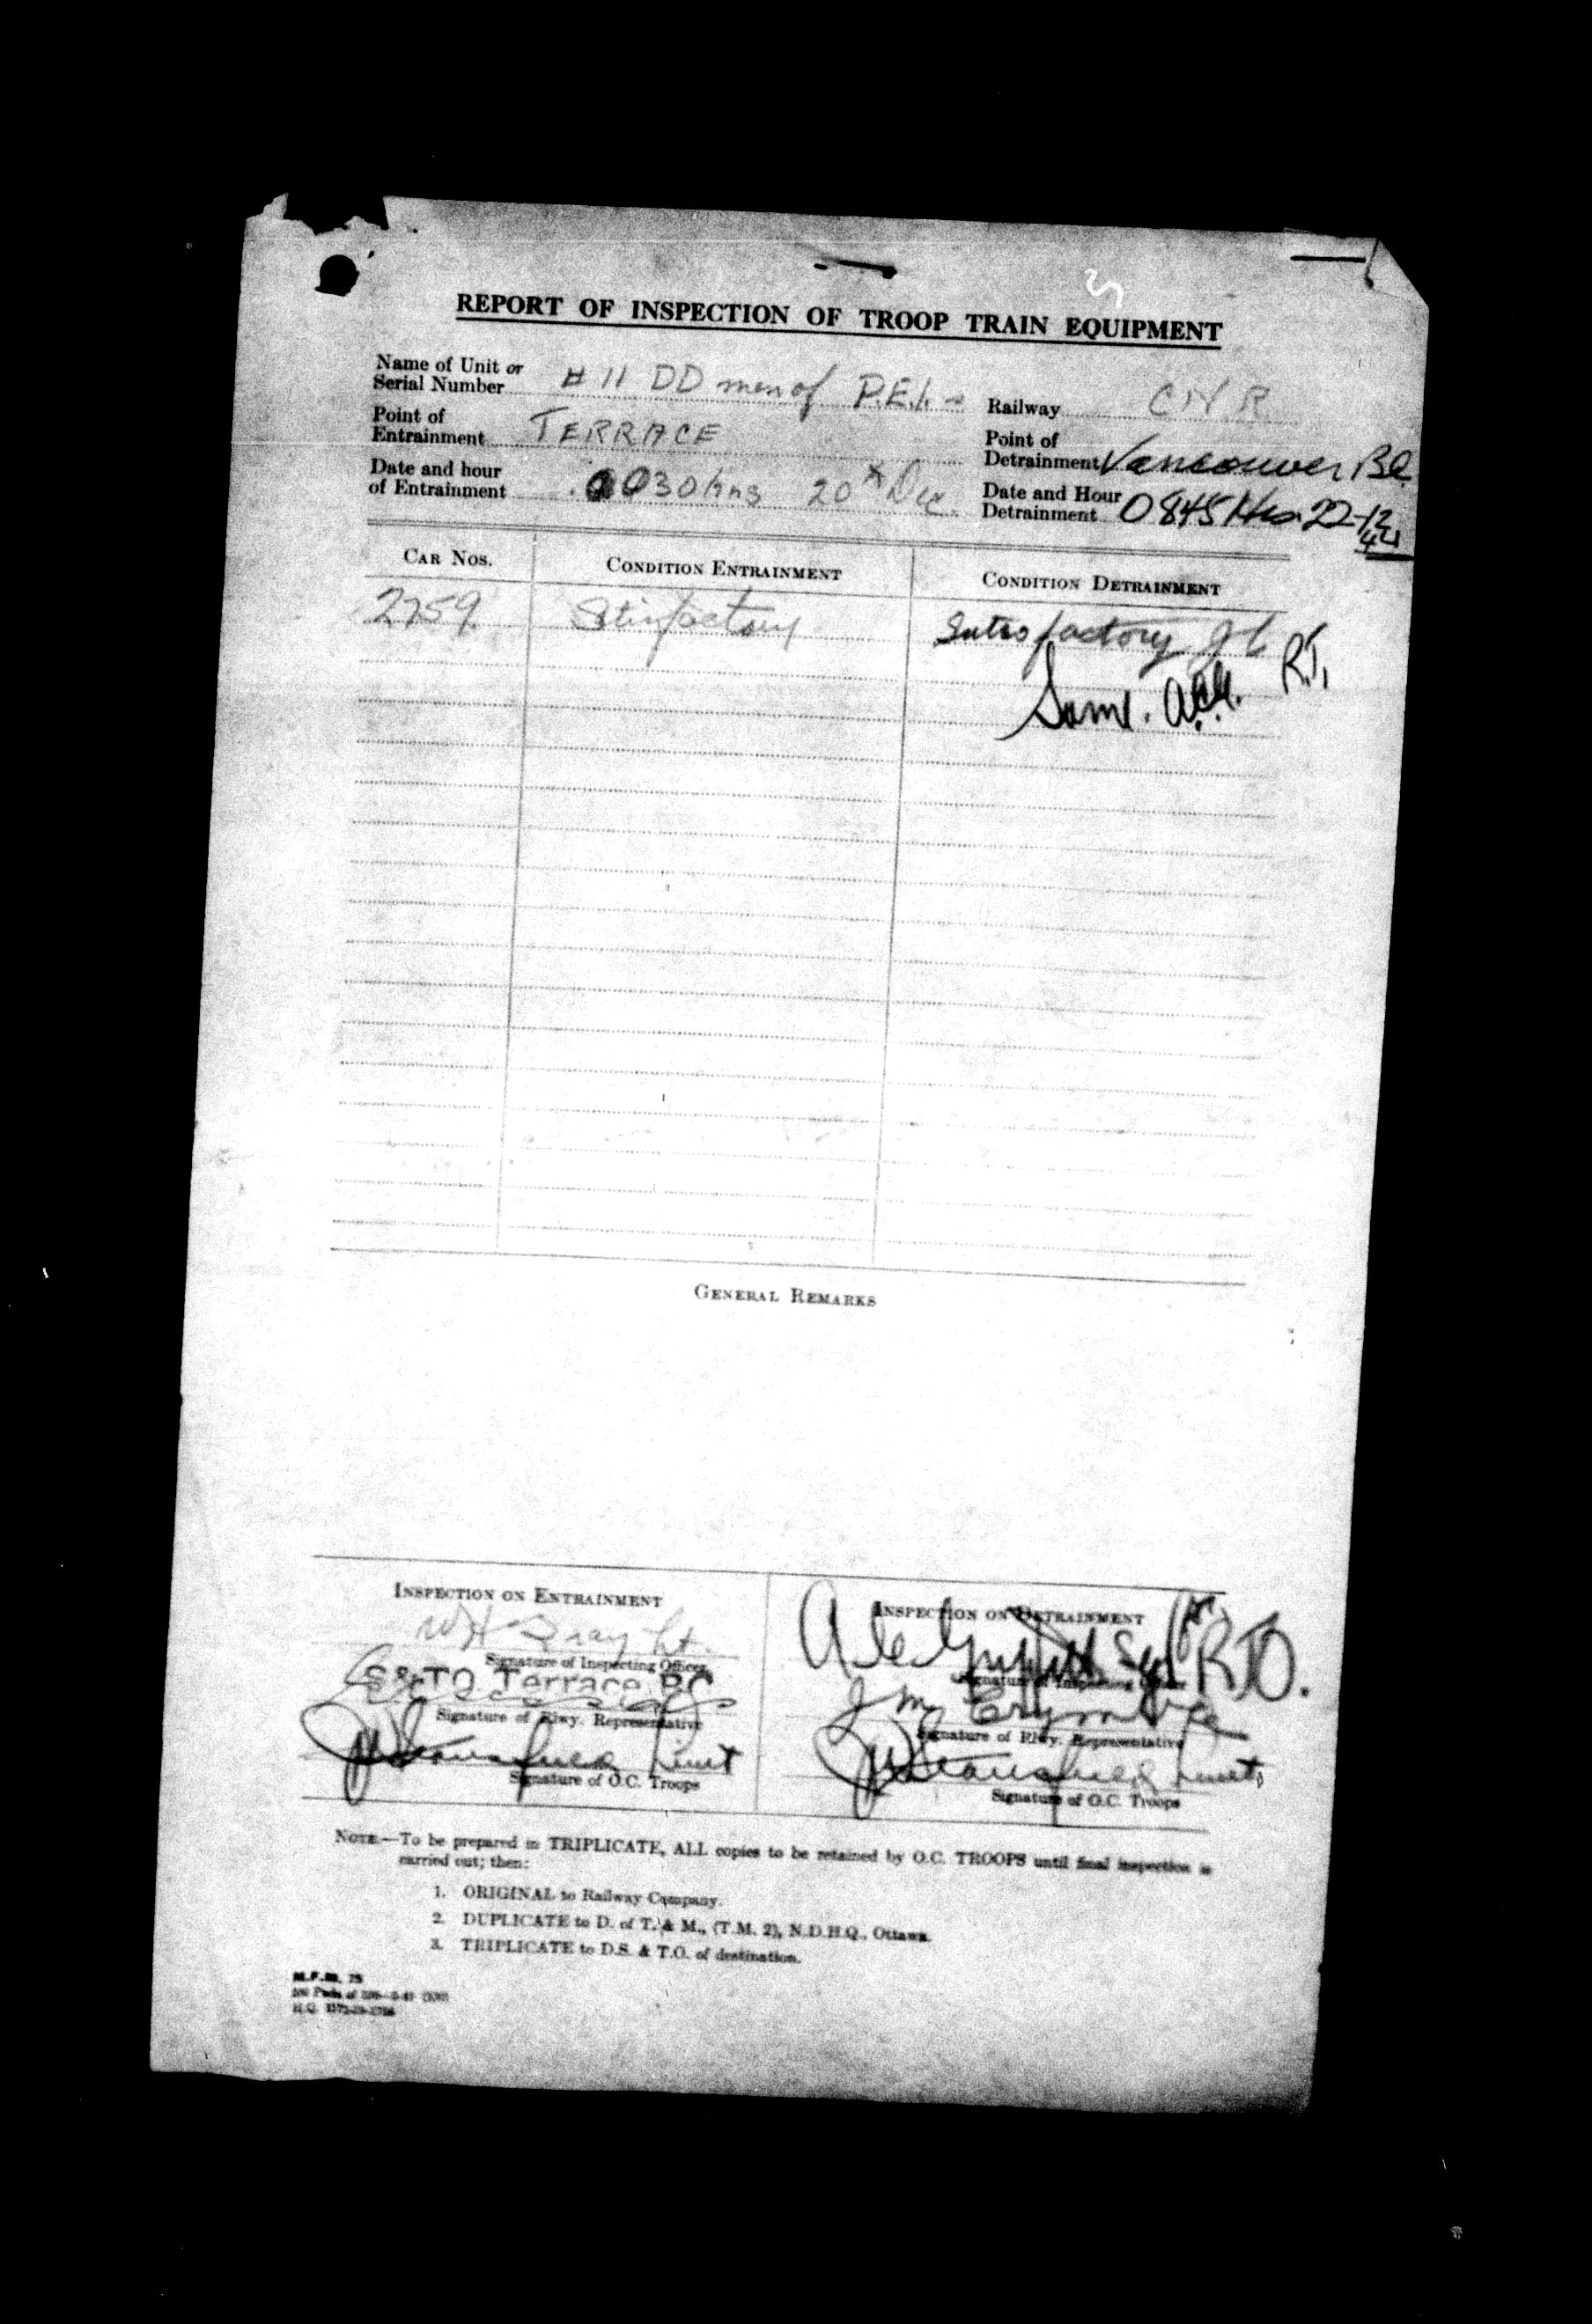 REPORT OF INSPECTION OF TROOP TRAIN EQUIPMENT
Name of Unit or
Serial Number # 11 DD men of P.E.I. -
Railway CNR
Point of
Entrainment TERRACE
Point of
Detrainment Vancouver BC
Date and hour
of Entrainment 0030 hrs 20th Dec.
Date and Hour
Detrainment 0845 Hrs 22-12
44
CAR NOS. CONDITION ENTRAINMENT CONDITION DETRAINMENT
2759 Stisfactory Satisfactory
R.T.
GENERAL REMARKS
INSPECTION ON ENTRAINMENT
Lt.
Signature of Inspecting Officer
S&TO Terrace, BC
Signature of Rlwy. Representative
Signature of O.C. Troops
INSPECTION ON DETRAINMENT
RTO.
Signature of Inspecting Officer
Signature of Rlwy. Representative
Signature of O.C. Troops
NOTE.—To be prepared in TRIPLICATE, ALL copies to be retained by O.C. TROOPS until final inspection is
carried out; then:
1. ORIGINAL to Railway Company.
2. DUPLICATE to D. of T. & M., (T.M. 2), N.D.H.Q., Ottawa.
3. TRIPLICATE to D.S. & T.O. of destination.
M.F.M. 75
H.Q.